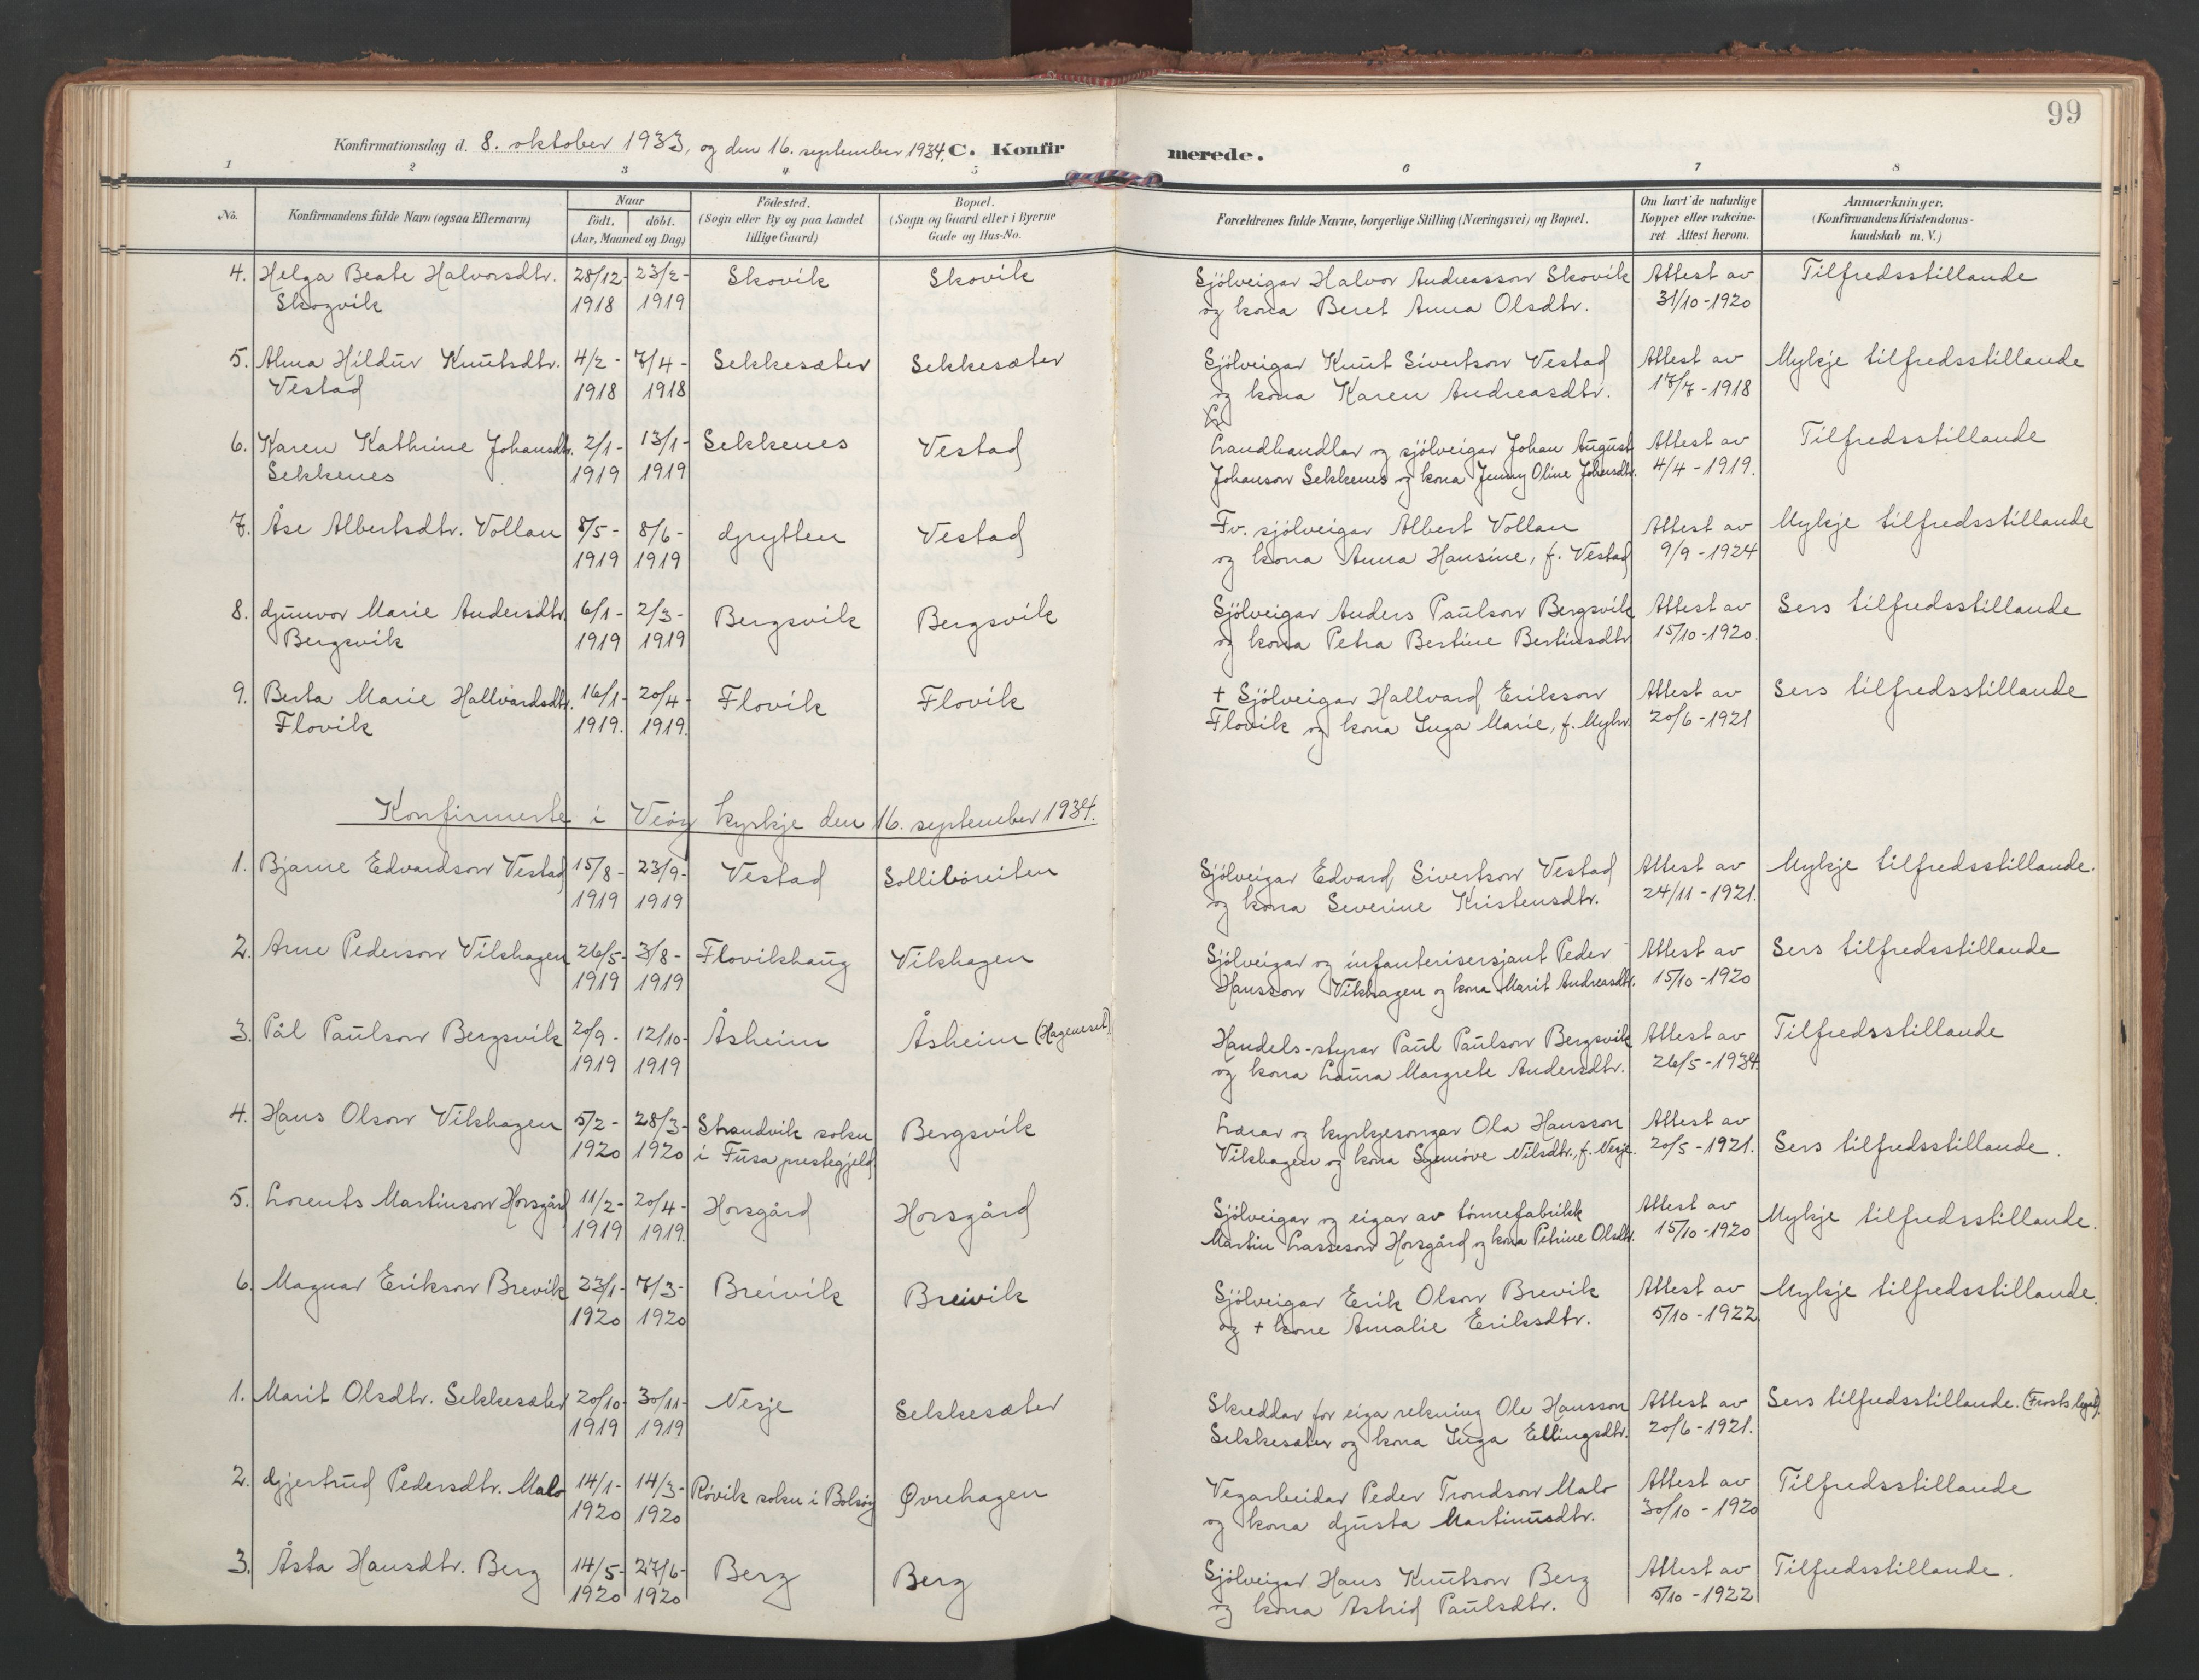 99
Konfirmationsdag d. 8. oktober 1933, og den 16. september 1934. C. Konfirmerede.
1 2 3 4 5 6 7 8
No. Konfirmandens fulde Navn (ogsaa Efternavn) Naar født. døbt. (Aar, Maaned og Dag) Fødested. (Sogn eller By og paa Landet tillige Gaard) Bopæl. (Sogn og Gaard eller i Byerne Gade og Hus-No. Forældrenes fulde Navne, borgerlige Stilling (Næringsvei) og Bopæl. Om havt de naturlige Kopper eller vakcineret Attest herom. Anmærkninger. (Konfirmandens Kristendomskundskab m. V.)
4. Helga Beate Halvorsdtr. 28/12- 23/2- Skovik Skovik Sjölveigar Halvor Andreasson Skovik Attest av Tilfredsstillande
Skogvik 1918 1919 og kona Beret Anna Olsdtr. 31/10-1920
5. Alma Hildur Knutsdtr. 4/2- 7/4- Sekkesæter Sekkesæter Sjölveigar Knut Sivertson Vestad Attest av Mykje tilfredsstillande
Vestad 1918 1918 og kona Karen Andreasdtr. 17/7-1918
6. Karen Kathrine Johansdtr. 2/1- 13/1- Sekkenes Vestad Landhandlar og sjölveigar Johan August Attest av Tilfredsstillande
Sekkenes 1919 1919 Johanson Sekkenes og kona Jenny Oline Johansdtr. 4/4-1919.
7. Åse Albertsdtr. Vollan 8/5- 8/6- Grytten Vestad Fv. sjölveigar Albert Vollan Attest av Mykje tilfredsstillande
1919 1919 og kona Anna Hansine, f. Vestad 9/9-1924
8. Gunvor Marie Andersdtr. 6/1- 2/3- Bergsvik Bergsvik Sjölveigar Anders Paulson Bergsvik Attest av Sers tilfredsstillande
Bergsvik 1919 1919 og kona Petra Bertine Bertinsdtr 15/10-1920.
9. Berta Marie Hallvardsdtr. 16/1- 20/4- Flovik Flovik + Sjölveigar Hallvard Erikson Attest av Sers tilfredsstillande
Flovik 1919. 1919. Flovik og kona Inga Marie, f. Myhr. 20/6-1921
Konfirmerte i Veöy kyrkje den 16. september 1934.
1. Bjarne Edvardson Vestad 15/8- 23/9- Vestad Solliböreiten Sjölveigar Edvard Sivertson Vestad Attest av Mykje tilfredsstillande.
1919 1919 og kona Severine Kristensdtr. 24/11-1921.
2. Arne Pederson Vikshagen 26/5- 3/8- Flovikshaug Vikhagen Sjölveigar og infanterisersjant Peder Attest av Sers tilfredsstillande
1919 1919 Hansson Vikhagen og kona Marit Andreasdtr. 15/10-1920
3. Pål Paulson Bergsvik 20/9- 12/10- Åsheim Åsheim (Hageneset) Handels-styrar Paul Paulson Bergsvik Attest av Tilfredsstillande
1919 1919 og kona Laura Margrete Andersdtr. 26/5-1934.
4. Hans Olson Vikshagen 5/2- 28/3- Strandvik sokn Bergsvik Lærar og kyrkjesongar Ola Hansson Attest av Sers tilfredsstillande.
1920 1920 i Fusa prestegjeld Vikshagen og kona Synnöve Nilsdtr., f. Nesje. 20/5-1921.
5. Lorents Martinson Horsgård 11/2- 20/4- Horsgård Horsgård Sjölveigar og eigar av tönnefabrikk Attest av Mykje tilfredsstillande.
1919 1919. Martin Lasseson Horsgård og kona Petrine Olsdtr. 15/10-1920
6. Magnar Erikson Brevik 23/1- 7/3- Breivik Breivik Sjölveigar Erik Olson Brevik Attest av Mykje tilfredsstillande.
1920 1920 og + kone Amalie Eriksdtr. 5/10-1922.
1. Marit Olsdtr. Sekkesæter 20/10- 30/11- Nesje Sekkesæter Skreddar for eiga rekning Ole Hansson Attest av Sers tilfredsstillande. (Frosts legat).
1919 1919 Sekkesæter og kona Inga Ellingsdtr. 20/6-1921.
2. Gjertrud Pedersdtr. Malo 14/1- 14/3- Rövik sokn i Bolsöy Øvrehagen Vegarbeidar Peder Trondson Malo Attest av Tilfredsstillande
1920 1920 og kona Gusta Martinusdtr. 30/10-1920
3. Åsta Hansdtr. Berg 14/5- 27/6- Berg Berg Sjölveigar Hans Knutson Berg Attest av Tilfredsstillande.
1920 1920 og kona Astrid Paulsdtr. 5/10-1922